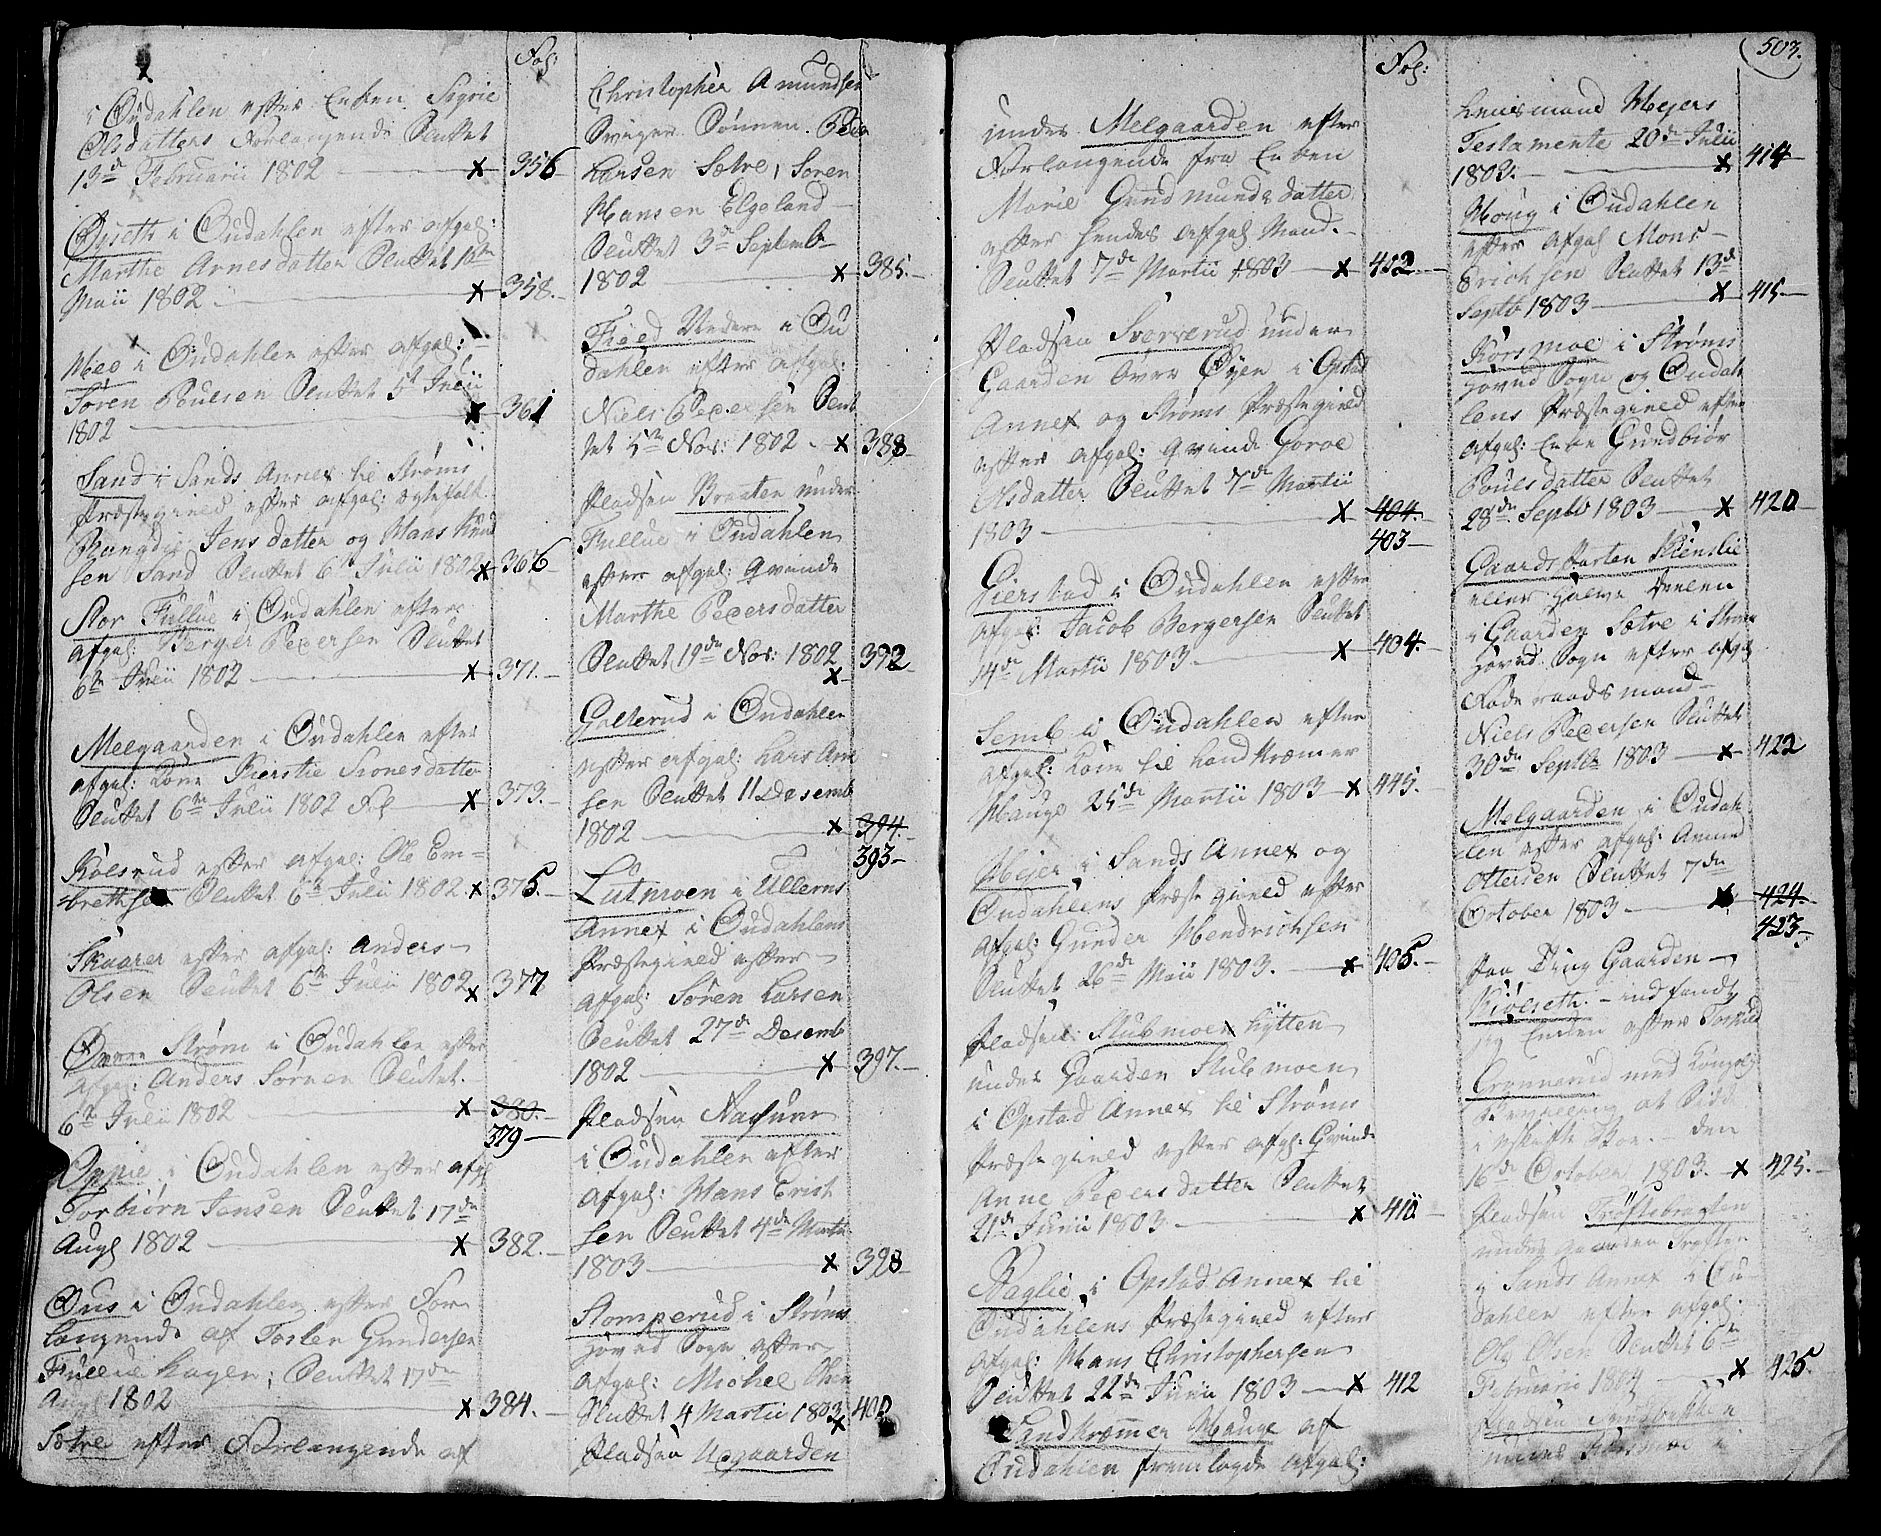 503.
Fol:
i Oudahlen efter Enken Sigrie
Olsdatters Forlangende Sluttet
13d Februarii 1802 — x 356
Opseth i Oudahlen efter afgal:
Marthe Arnesdatter Sluttet 12te
Maii 1802 — x 358.
Moe i Oudahlen efter afgal:
Søren Poulsen Sluttet 5t Julii
1802 — x 361
Sand i Sands Annex til Strøms
Præstegield efter afgal: ægtefolk
Rangdi Jensdatter og Hans Knud
sen Sand Sluttet 6te Julii 1802 x 366
Stor Fullue i Oudahlen efter
afgal: Berger Pedersen Sluttet
6te Julii 1802 — x 371.
Melgaarden i Oudahlen efter
afgal: Kone Kierstie Simonsdatter
Sluttet 6te Julii 1802 Fol — x 373.
Kolsrud efter afgal: Ole Em-
brethsen Sluttet 6te Julii 1802. x 375.
Skaarer efter afgal: Anders
Olsen Sluttet 6te Julii 1802 x 377
Strøm i Oudahlen efter
afgal: Anders Sørnsen Sluttet.
6te Julii 1802 — x 380.
379
Oppie i Oudahlen efter afgl
Torbiørn Jensen Sluttet 17de
Augl 1802 — x 382.
Ous i Oudahlen efter For
langende af Tosten Gundersen
Fullue hagen; Sluttet 17de
Augl 1802 — x 384.
Sætre efter Forlangende af
Christopher Amundsen
Sviger Sønnen. Peder
Larsen Sætre, Søren
Hansen Elgeland
Sluttet 3de Septemb
1802 — x 385.
Fioed Nedere i Ou
dahlen efter afgal:
Niels Pedersen Slut
tet 5te Nov: 1802 — x 388
Pladsen Braaten under
Fullue i Oudahlen
efter afgal: Qvinde
Marthe Pedersdatter
Sluttet 19de Nov: 1802 x 392
Galterud i Oudahlen
efter afgal: Lars Am
sen Sluttet 11 Desemb
1802 — x 394.
393
Lutmoen i Ullerns
Annex i Oudahlens
Præstegield efter
afgal: Søren Larsen
Sluttet 27de Desemb
1802 — x 397.
Pladsen
i Oudahlen efter
afgal: Hans Erich
sen Sluttet 4de Martii
1803 — x 398
Stomperud i Strøms
hoved Sogn efter
afgal: Michel Olsen
Sluttet 4 Martii 1803 x 400
Pladsen Nøgaarden
Fol:
under Melgaarden efter
Forlangende fra Enken
Marie Gudmundsdatter
efter hendes afgal Mand.
Sluttet 7de Martii 1803 — x 402
Pladsen Sververud under
Gaarden Øvre Øyen i Opstad
Annex og Strøms Præstegield
efter afgal: Qvinde Goroe
Olsdatter Sluttet 7de Martii
1803 — x 404.
403
Gierstad i Oudahlen efter
afgal: Jacob Bergersen Sluttet
14de Martii 1803 — x 404.
Semb i Oudahlen efter
afgal: Kone til Landkræmer
Hauge 25de Martii 1803 — x 445.
Mejer i Sands Annex og
Oudahlens Præstegield efter
afgal: Gunder Hendrichsen
Sluttet 26de Maii 1803. — x 406.
Pladsen Slubmoen hytten
under Gaarden Slubmoen
i Opstad Annex til Strøms
Præstegield efter afgl: Qvinde
Anne Pedersdatter Sluttet
21de Junii 1803 — x 410
Baglie i Opstad Annex til
Oudahlens Præstegield efter
afgal: Hans Christophersen
Sluttet 22de Junii 1803 — x 412
Landkræmmer Hauge af
Oudahlen fremlagde afgal:
Lensmand Mejers
Testamente 20de Julii
1803. — x 414
Moug i Oudahlen
efter afgal Mons
Erichsen Sluttet 13de
Septb 1803 — x 415
Korsmoe i Strøms
hoved Sogn og Oudah
lens Præstegield efter
afgal: Enke Gundbiør
Poulsdatter Sluttet
28de Septb 1803 — x 420
Gaardsparten
eller halve Deelen
i Gaarden Sætre i Strøms
hoved Sogn efter afgal
Foderaadsmand
Niels Pedersen Sluttet
30de Septb 1803 — x 422
Melgaarden i Oudah
len efter afgal: Amund
Ottersen Sluttet 7de
October 1803 — x 424
423
Paa Ting Gaarden
Kiølseth indfandt
jeg Enken efter
Grønnerud med Kongel
Bevilling at Sidde
i uskifte Boe. Den
16de October 1803. — x 425.
Pladsen Trøftebragten
under Gaarden Trøften
i Sands Annex i Ou-
dahlen efter afgal.
Ole Olsen Sluttet 6te
Februarii 1804 — x 425.
Pladsen
under Korsmoe i